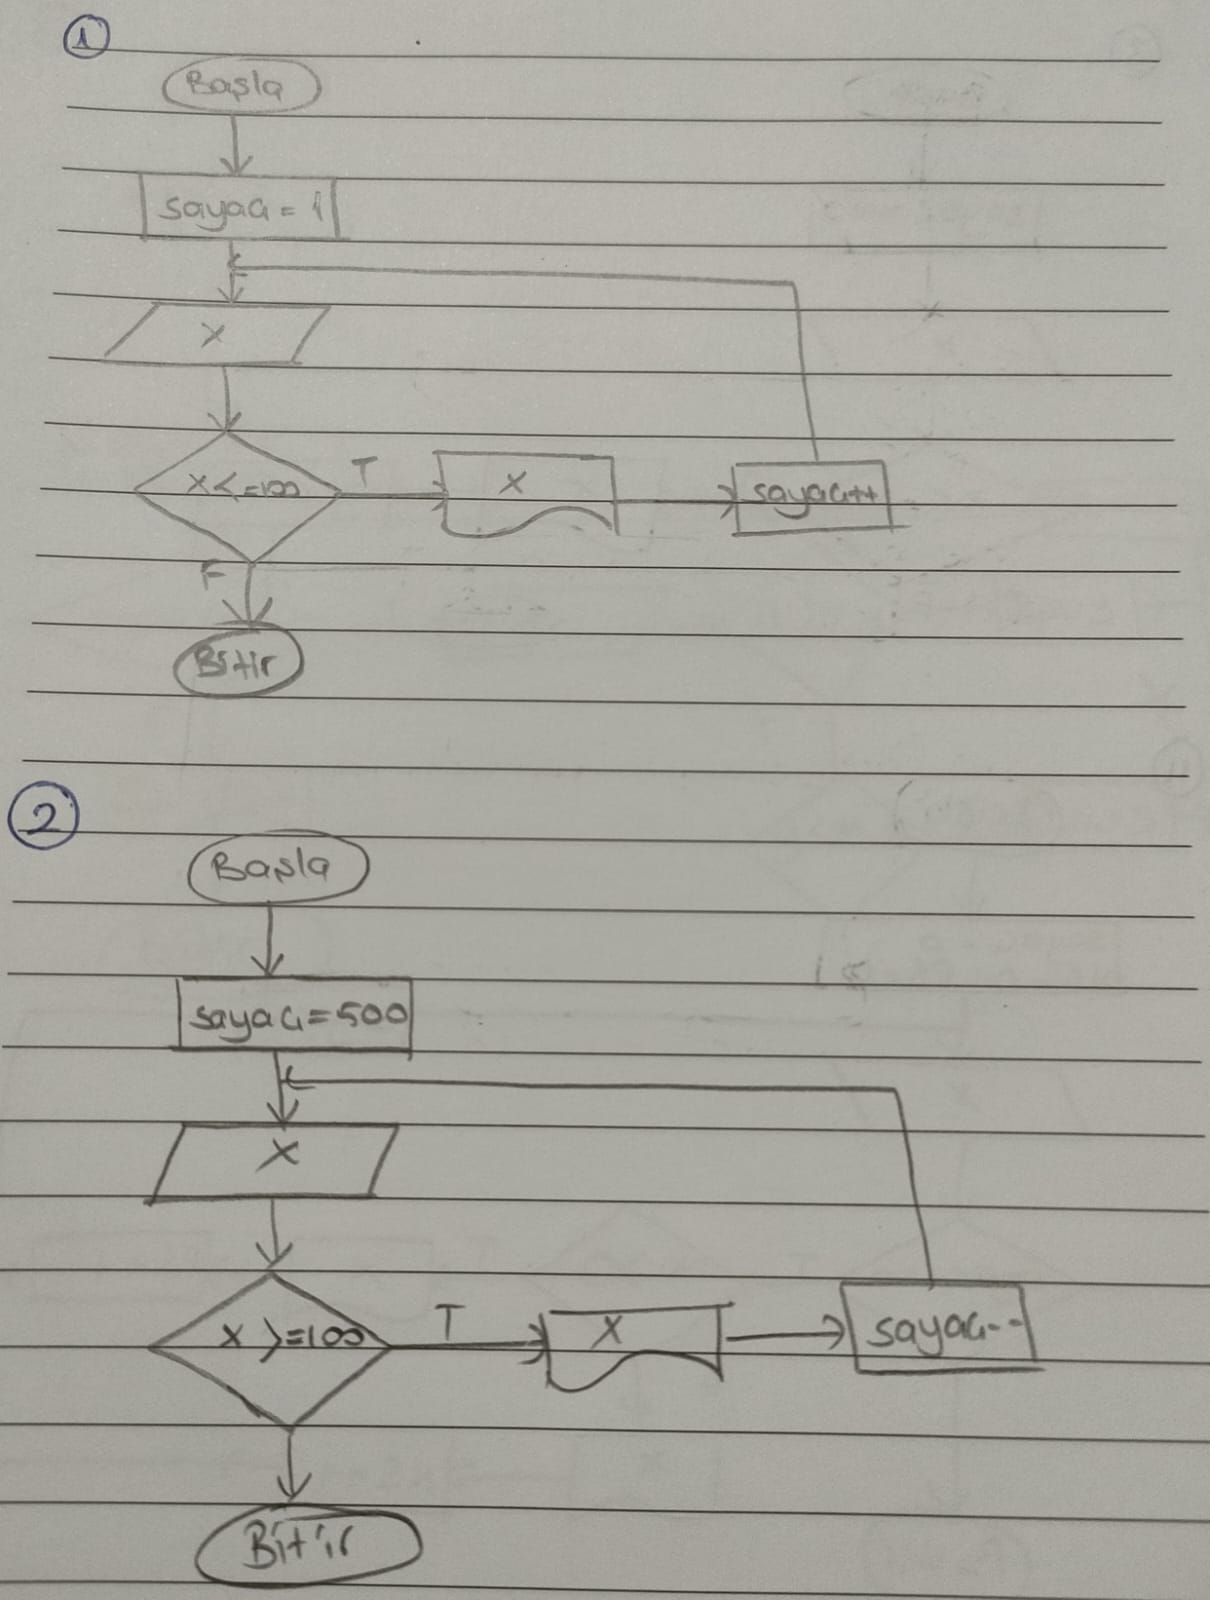 1
Başla
sayaç = 1
X
X <= 100
T
X
sayaç++
F
Bitir
2
Başla
sayaç = 500
X
X >= 100
T
X
sayaç--
Bitir